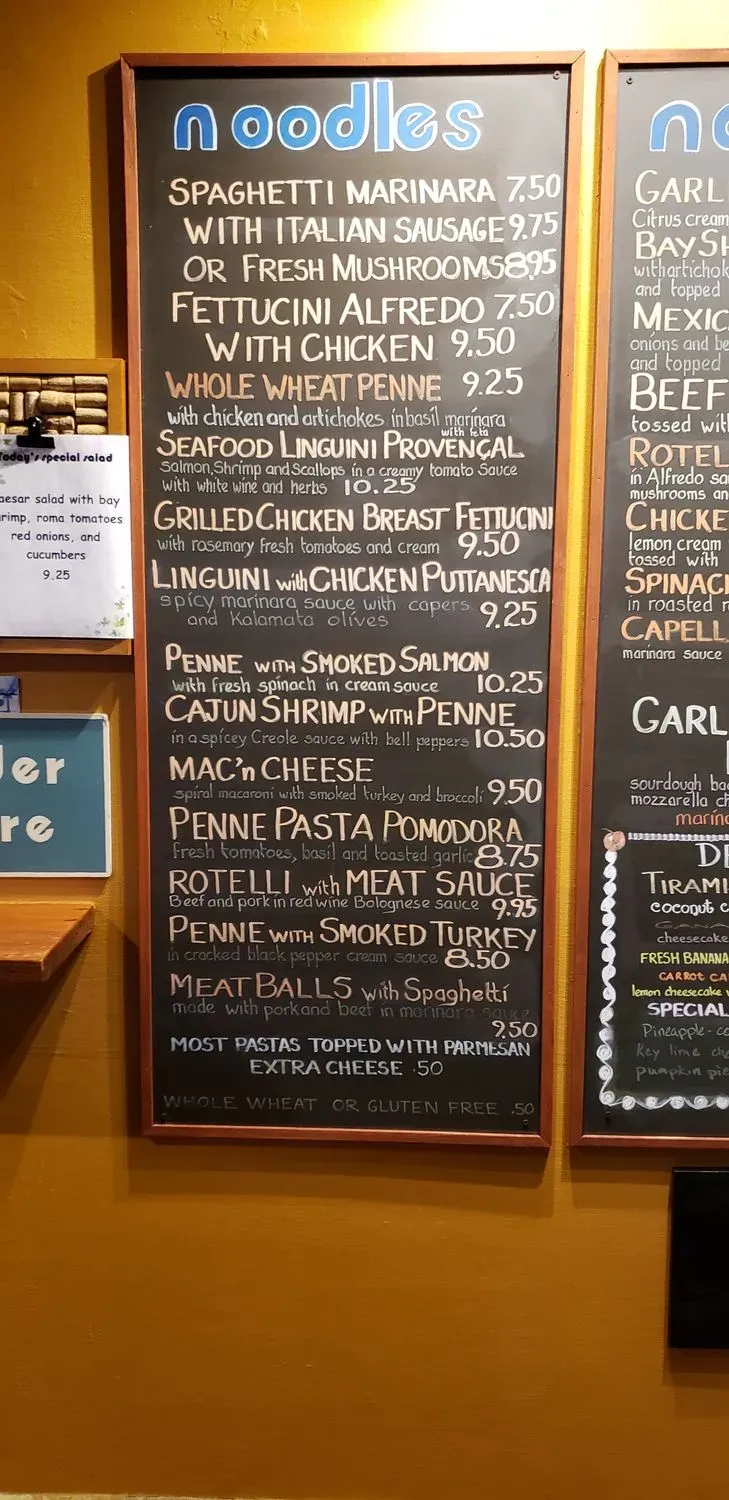 noodles
SPAGHETTI MARINARA 7.50
WITH ITALIAN SAUSAGE 9.75
OR FRESH MUSHROOMS 8.95
FETTUCINI ALFREDO 7.50
WITH CHICKEN 9.50
WHOLE WHEAT PENNE 9.25
with chicken and artichokes in basil marinara
with feta
SEAFOOD LINGUINI PROVENÇAL
Salmon, Shrimp and Scallops in a creamy tomato sauce
with white wine and herbs 10.25
GRILLED CHICKEN BREAST FETTUCINI
with rosemary fresh tomatoes and cream 9.50
LINGUINI with CHICKEN PUTTANESCA
spicy marinara sauce with capers
and Kalamata olives 9.25
PENNE WITH SMOKED SALMON
with fresh spinach in cream sauce 10.25
CAJUN SHRIMP WITH PENNE
in a spicey Creole sauce with bell peppers 10.50
MAC'n CHEESE
spiral macaroni with smoked turkey and broccoli 9.50
PENNE PASTA POMODORA
fresh tomatoes, basil and toasted garlic 8.75
ROTELLI with MEAT SAUCE
Beef and pork in red wine Bolognese sauce 9.95
PENNE WITH SMOKED TURKEY
in cracked black pepper cream sauce 8.50
MEAT BALLS with Spaghetti
made with pork and beef in marinara sauce
9.50
MOST PASTAS TOPPED WITH PARMESAN
EXTRA CHEESE .50
WHOLE WHEAT OR GLUTEN FREE .50
Today's special salad
aesar salad with bay
rimp, roma tomatoes
red onions, and
cucumbers
9.25
der
re
no
GARL
Citrus cream
BAY SH
with artichok
and topped
MEXIC
onions and be
and topped
BEEF
tossed with
ROTEL
in Alfredo sa
mushrooms an
CHICKE
lemon cream
tossed with
SPINAC
in roasted r
CAPELL
marinara sauce
GARL
sourdough ba
mozzarella ch
marina
DE
TIRAMI
coconut c
cheesecake
FRESH BANANA
CARROT CA
lemon cheesecake
SPECIAL
Pineapple-co
Key lime che
pumpkin pie